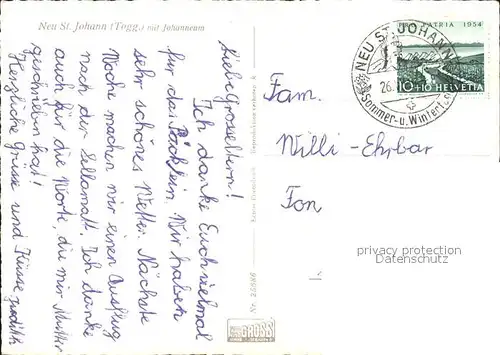 Neu St. Johann (Togg.) mit Johanneum
Liebe Grosseltern!
Ich danke Euch vielmal
für das Päcklein. Wir haben
sehr schönes Wetter. Nächste
Woche machen wir einen Ausflug
nach der Sellamatt. Ich danke
auch für die Worte, die mir Mutter
geschrieben hat!
Herzliche Grüsse und Küsse
Nr.
GROSS
NEU ST. JOHANN
26.
Sommer- u. Winter
PRO PATRIA 1954
10+10 HELVETIA
Fam.
Willi-Ehrbar
Fon
privacy protection
Datenschutz